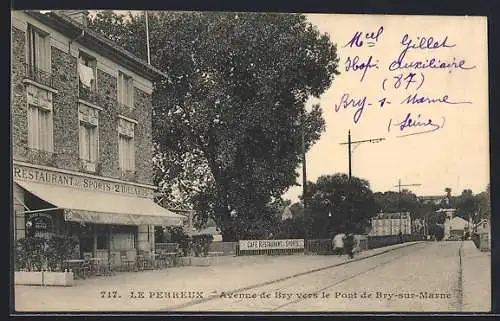 Mel Gillet
Hop. auxiliaire
(87)
Bry-s-Marne
(Seine)
RESTAURANT DES SPORTS 2 BILLARDS
CAFÉ RESTAURANT DES SPORTS
717. LE PERREUX - Avenue de Bry vers le Pont de Bry-sur-Marne